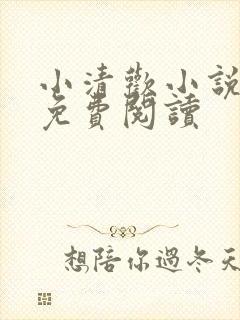 小清歡小說
免費閱讀
想陪你過冬天